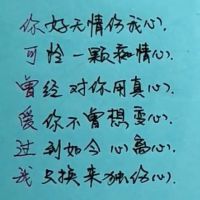 你好无情伤我心,
可怜一颗痴情心.
曾经对你用真心.
爱你不曾想变心.
过到如今心离心.
我只换来独伤心.